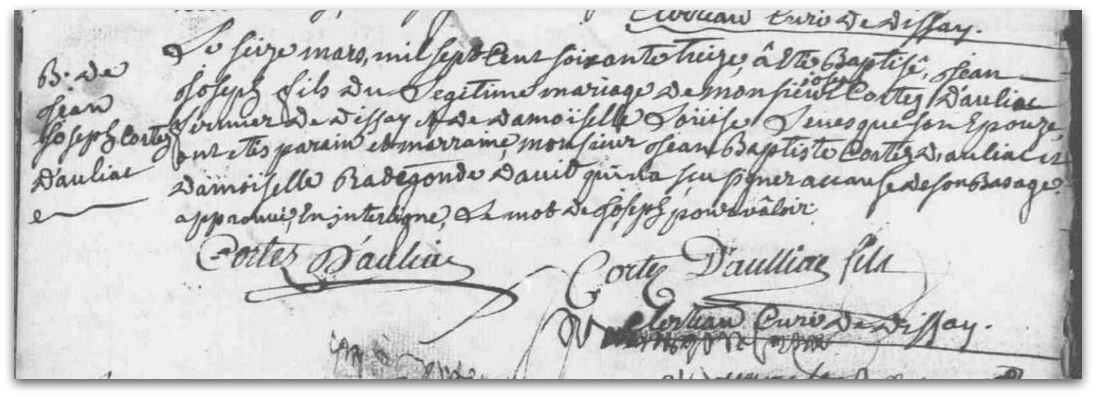 Curé de dissay.
Le seize mars, mil sept Cent soixante treize, à Eté Baptisé, jean
joseph fils du Legitime mariage de monsieur joseph Cortez D'auliac
fermier de dissay et de damoiselle Loüise Levesque son Epouze,
ont etés parain et marraine, monsieur jean Baptiste Cortez D'auliac et
Damoiselle Radegonde David qui n'a sçu signer accause de son Basage
approuvé, En interligne, Le mot de joseph pour valoir.
B. de
jean
joseph Cortez
D'auliac
Cortez D'auliac
Cortez D'aulliac fils
Curé de dissay.